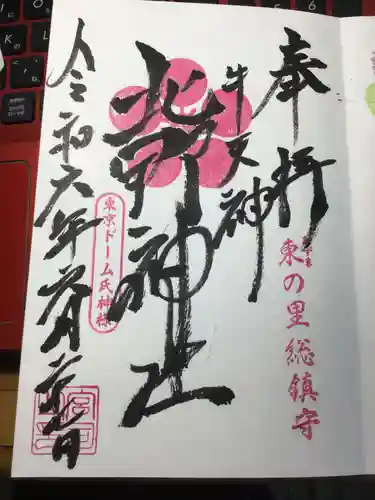 奉拝
東の里総鎮守
牛天神
北野神社
東京ドーム氏神様
令和六年